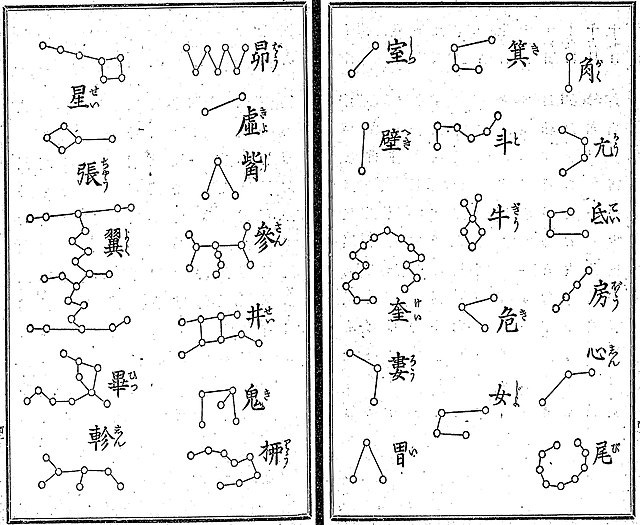 角かく
亢かう
氐てい
房ばう
心しん
尾び
箕き
斗と
牛ぎう
危き
女じよ
室しつ
壁へき
奎けい
婁ろう
胃い
昴ばう
虛きよ
觜し
參しん
井せい
鬼き
柳りう
星せい
張ちやう
翼よく
畢ひつ
軫しん